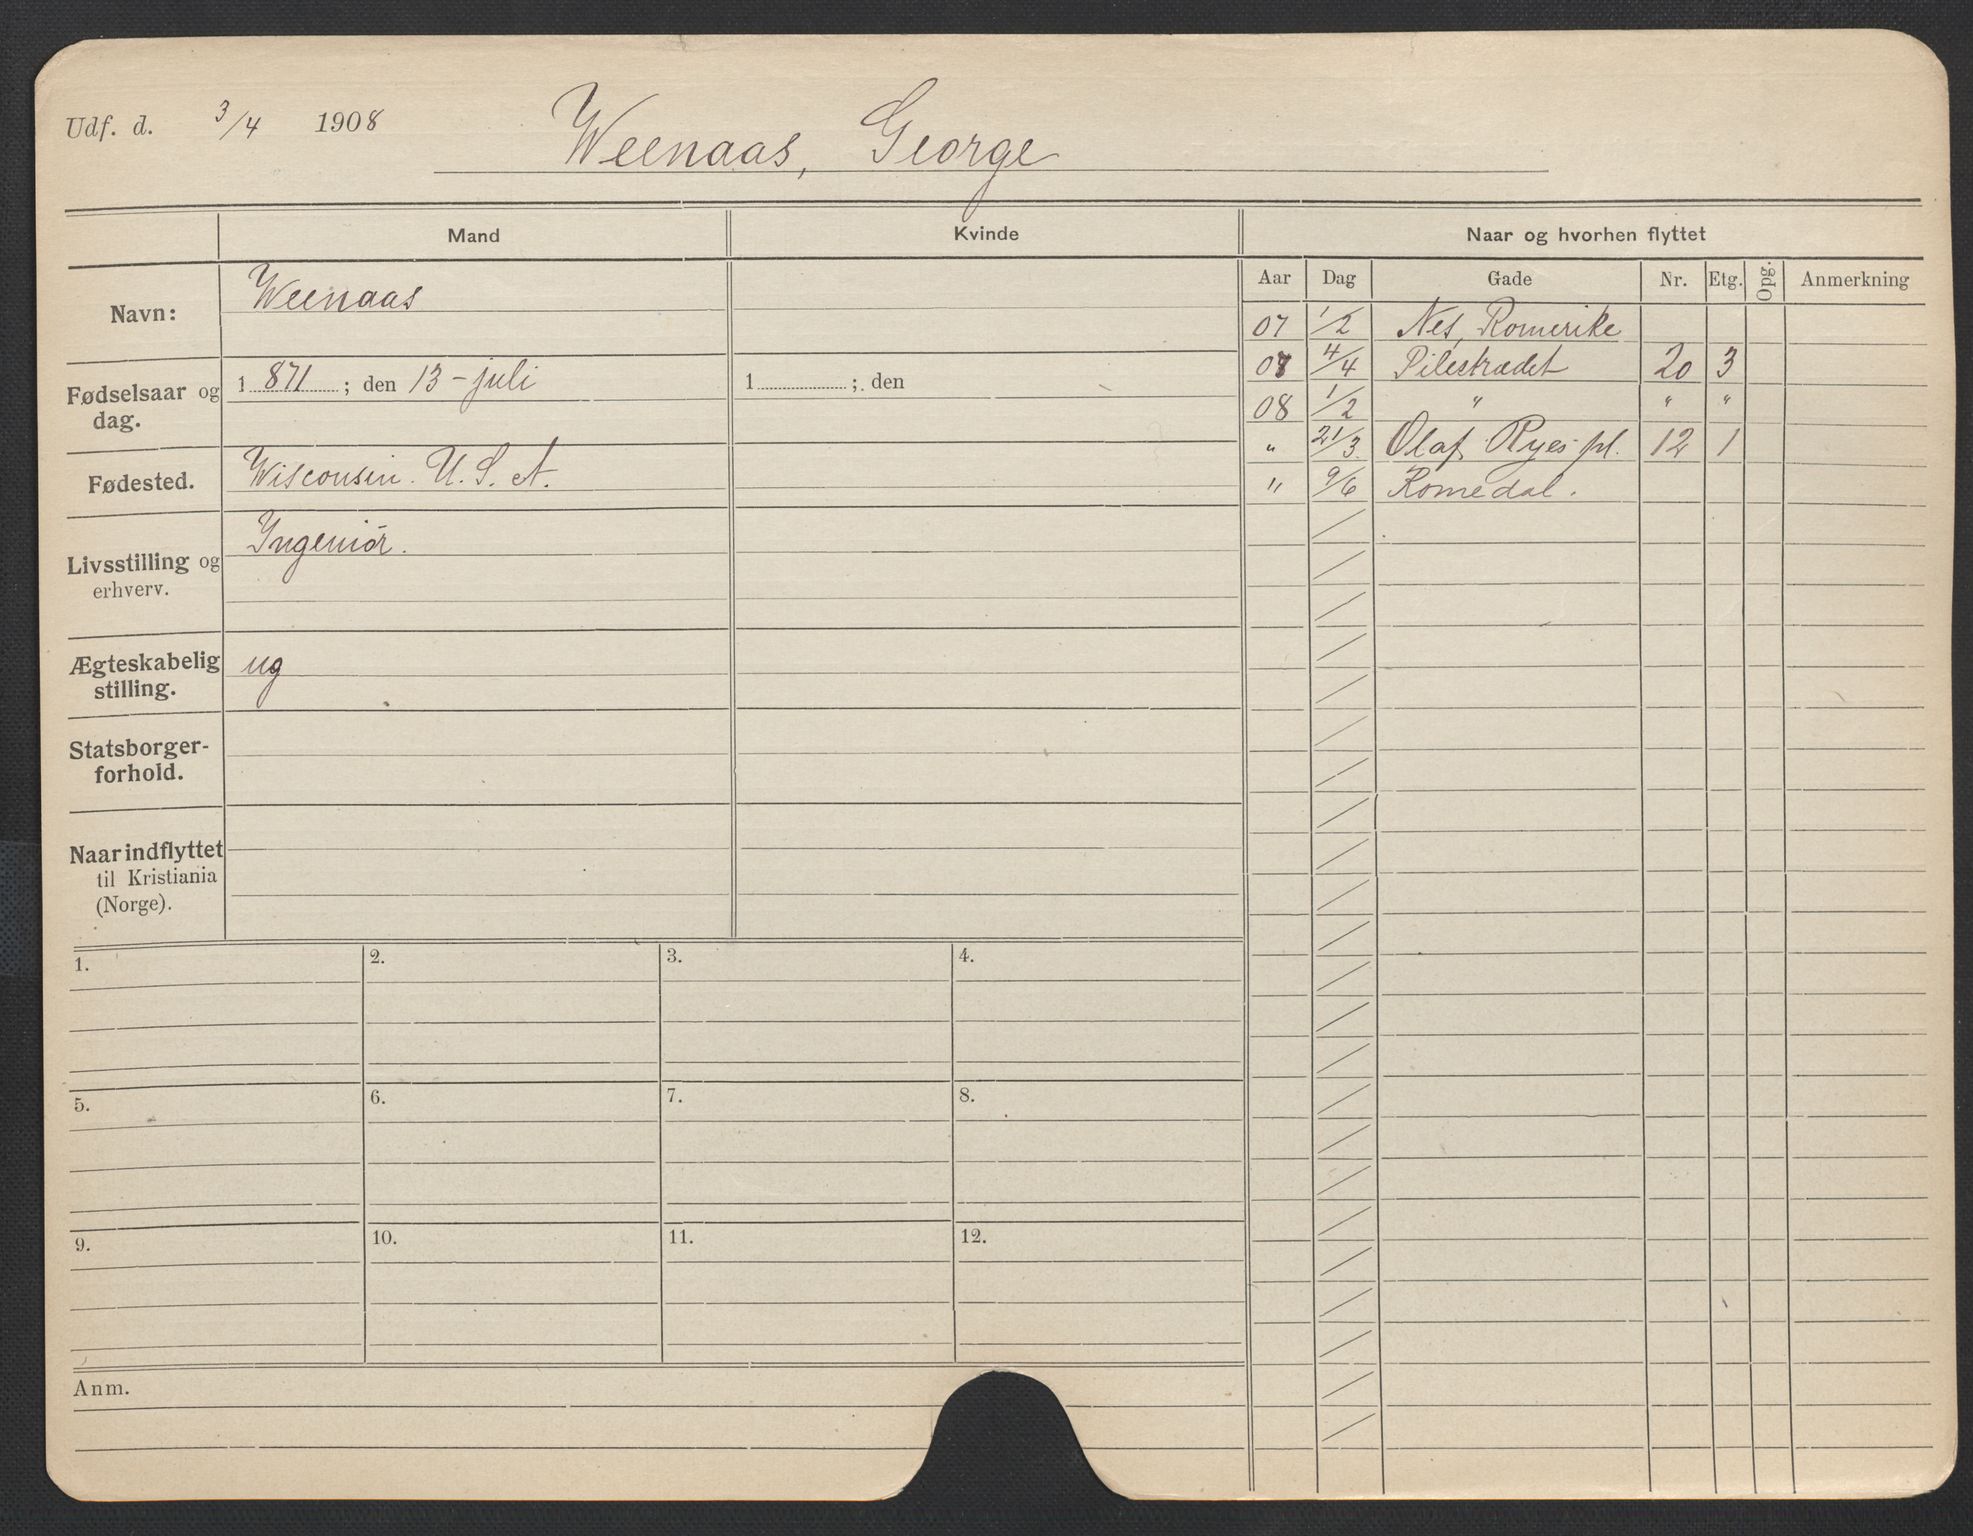 Udf. d. 3/4 1908
Weenaas, George
Mand Kvinde Naar og hvorhen flyttet
Aar Dag Gade Nr. Etg. Opg. Anmerkning
Navn: Weenaas
Fødselsaar og dag. 1 871 ; den 13 - juli 1 ; den
Fødested. Wisconsin. U. S. A.
Livsstilling og erhverv. Ingeniør.
Ægteskabelig stilling. ug
Statsborger-
forhold.
Naar indflyttet
til Kristiania
(Norge).
07 1/2 Nes, Romerike
07 4/4 Pilestrædet 20 3
08 1/2 " " "
" 21/3 Olaf Ryes pl. 12 1
" 9/6 Romedal.
1. 2. 3. 4.
5. 6. 7. 8.
9. 10. 11. 12.
Anm.